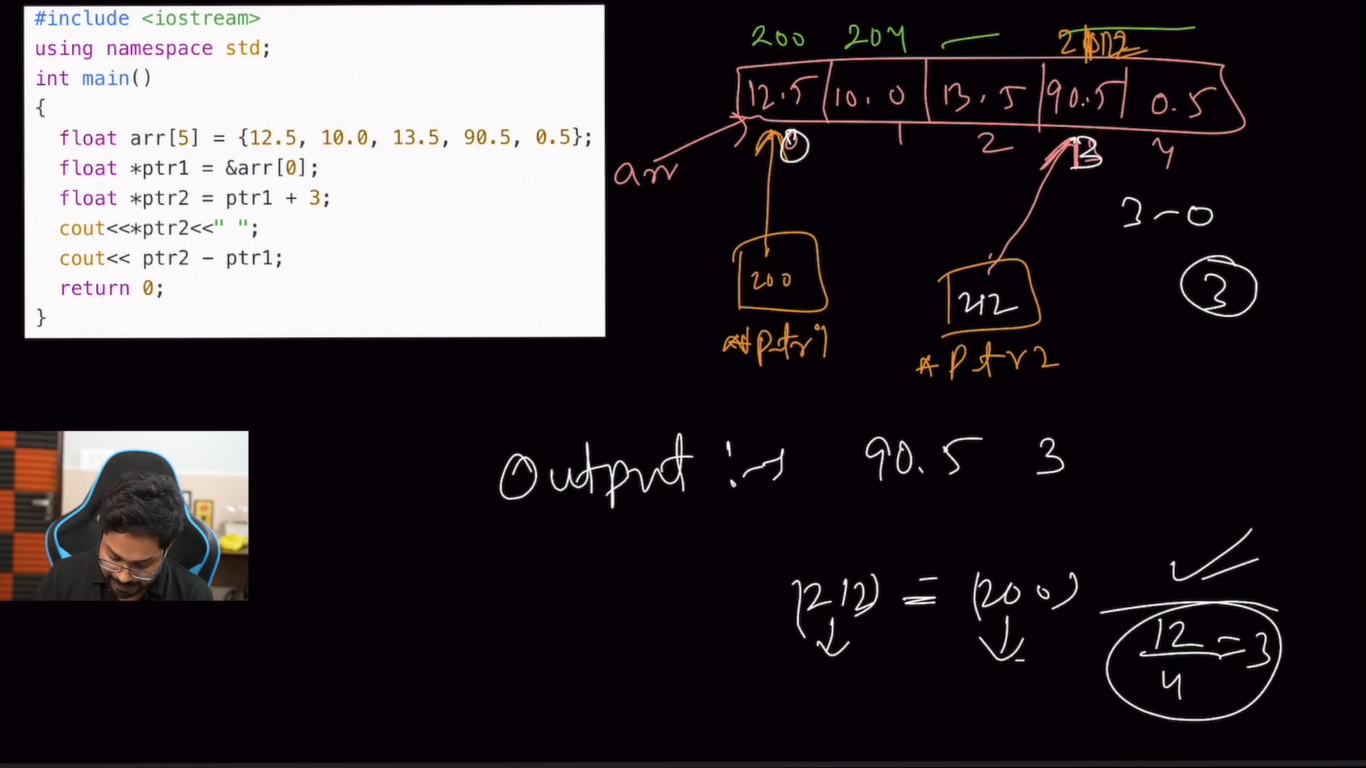 #include <iostream>
using namespace std;
int main()
{
  float arr[5] = {12.5, 10.0, 13.5, 90.5, 0.5};
  float *ptr1 = &arr[0];
  float *ptr2 = ptr1 + 3;
  cout<<*ptr2<<" ";
  cout<< ptr2 - ptr1;
  return 0;
}
200 204
12.5 10.0 13.5 90.5 0.5
0 1 2 3 4
arr
3-0
200 212 3
*ptr1 *ptr2
Output :→ 90.5 3
(212) = (200)
12/4 = 3